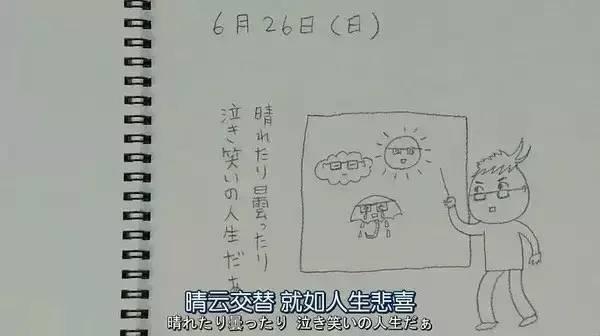 6月26日(日)
晴れたり曇ったり
泣き笑いの人生だぁ
晴云交替 就如人生悲喜
晴れたり曇ったり 泣き笑いの人生だぁ